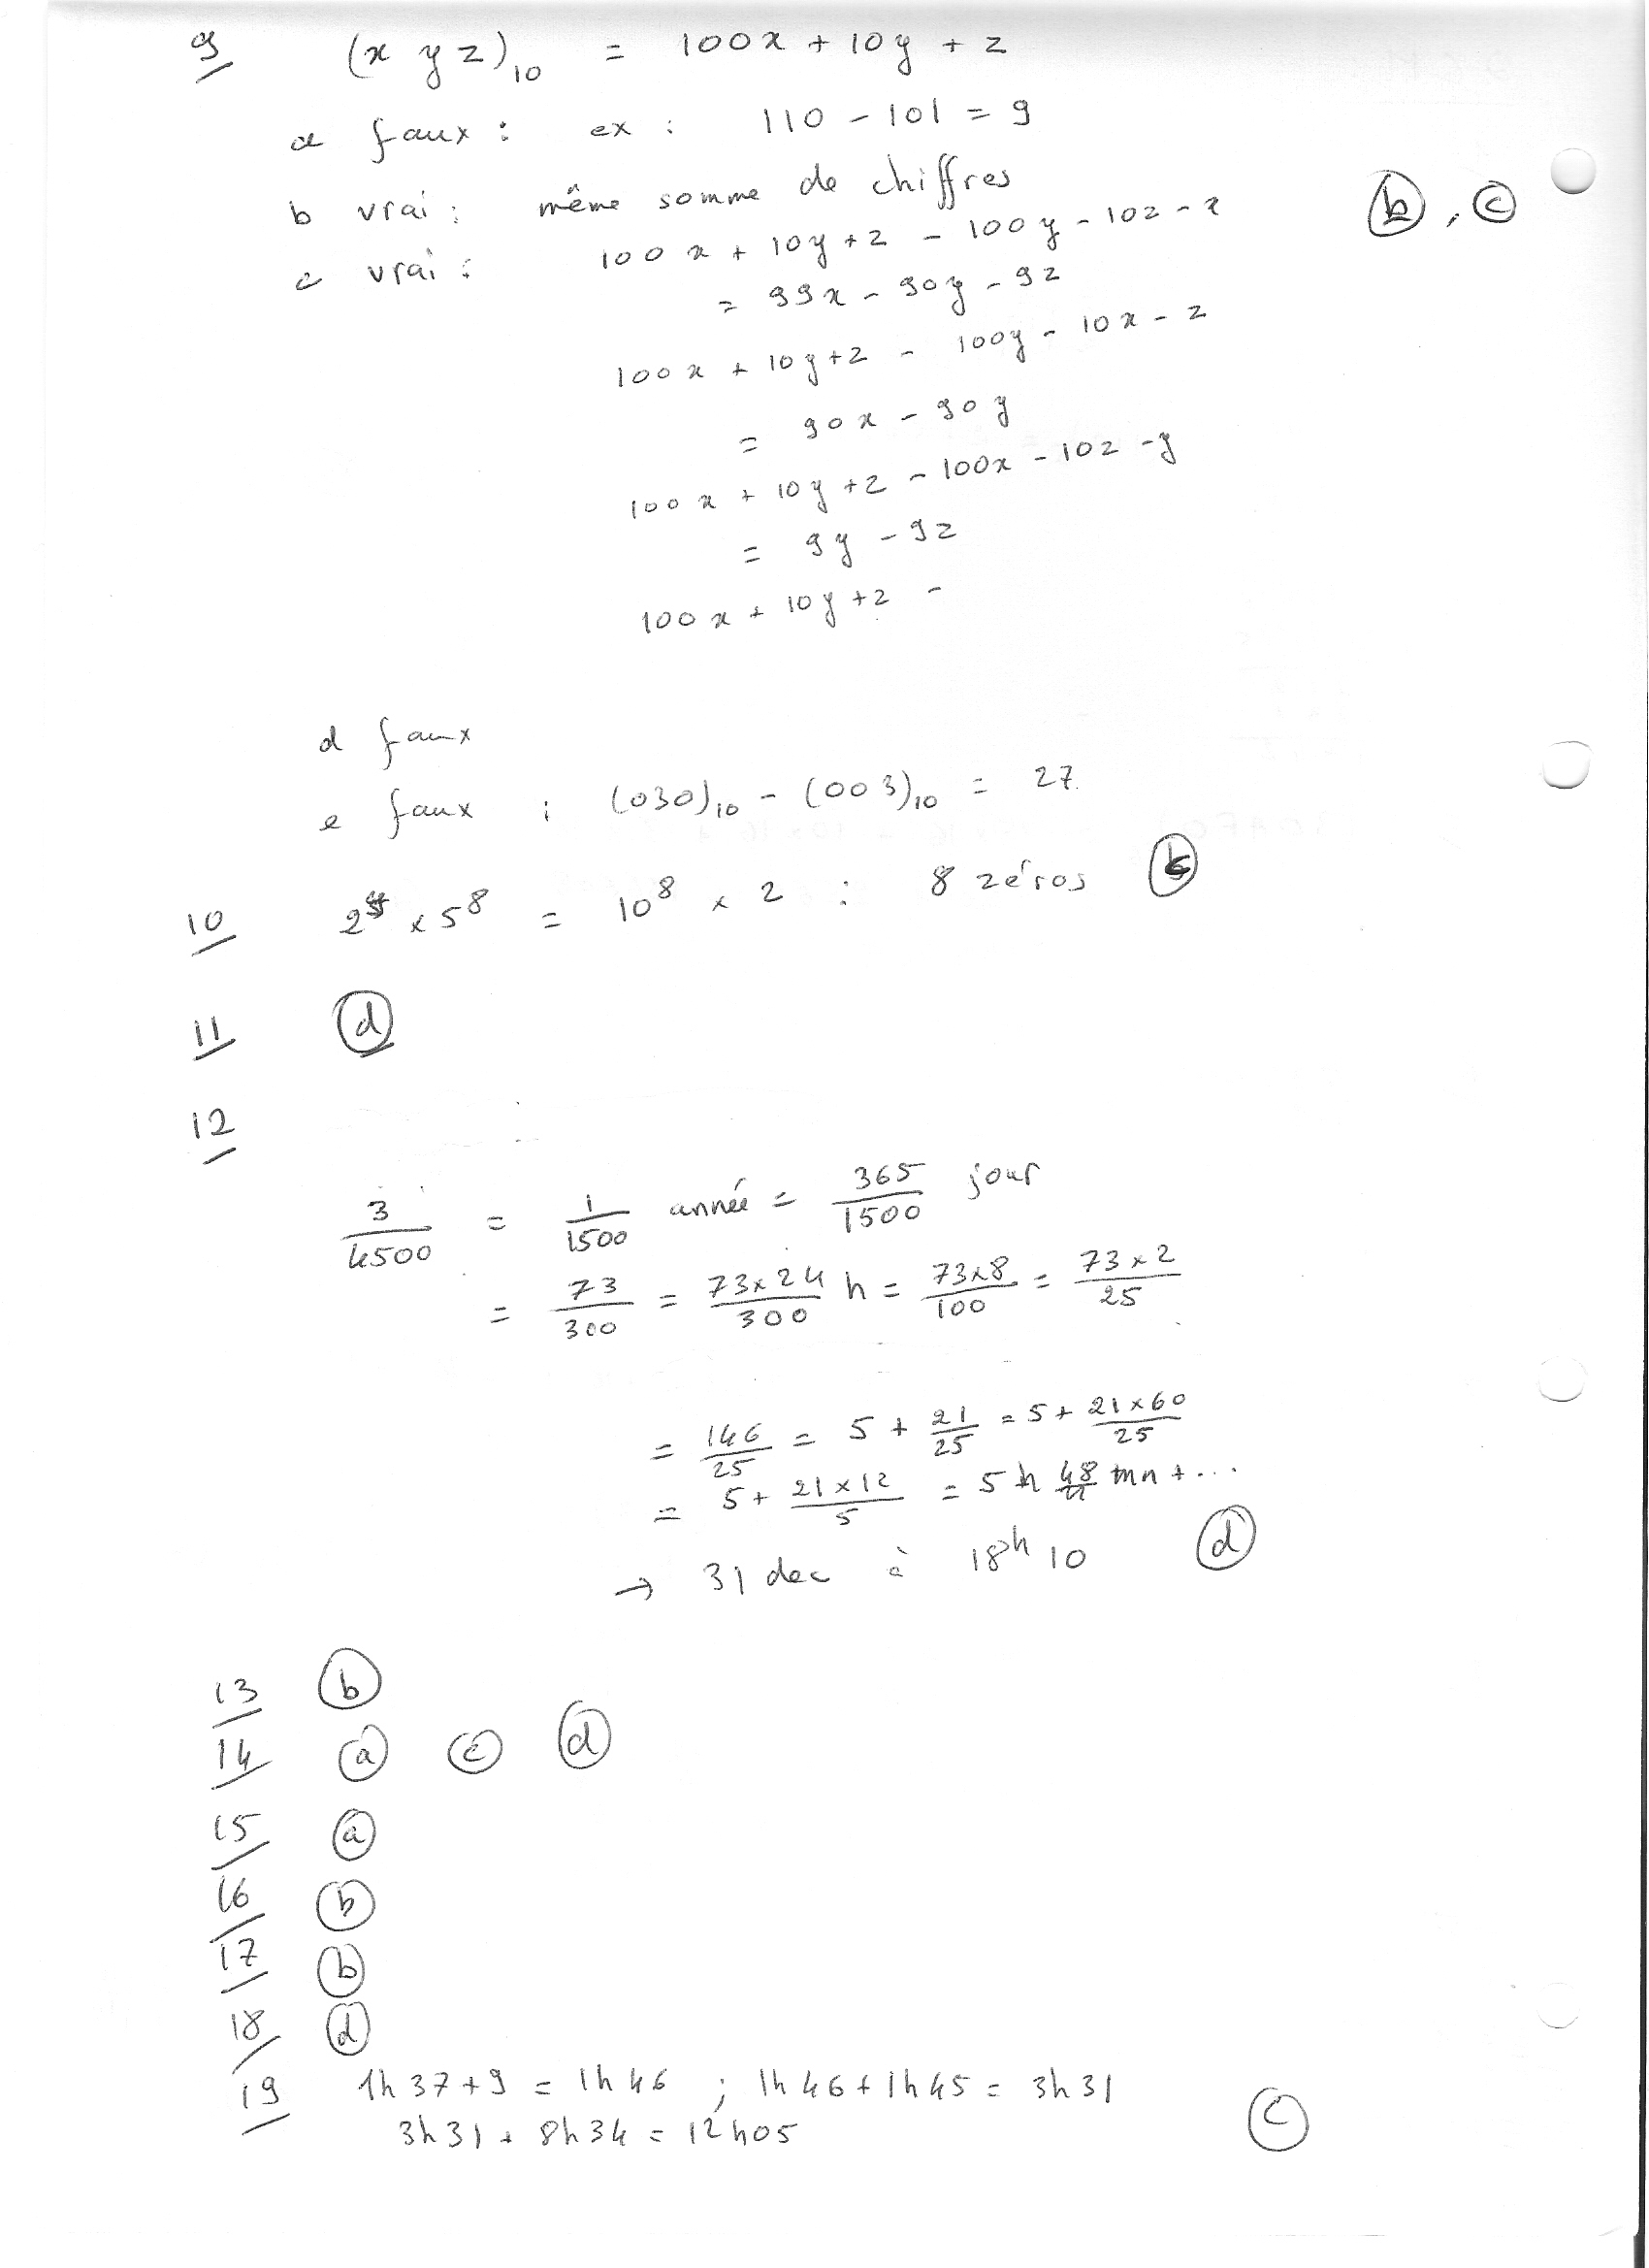 9 (x y z)₁₀ = 100x + 10y + z
a faux : ex : 110 - 101 = 9
b vrai : même somme de chiffres (b), (c)
c vrai : 100x + 10y + z - 100y - 10z - x
= 99x - 90y - 9z
100x + 10y + z - 100y - 10x - z
= 90x - 90y
100x + 10y + z - 100x - 10z - y
= 9y - 9z
100x + 10y + z -
d faux
e faux : (030)₁₀ - (003)₁₀ = 27
10 2⁹ × 5⁸ = 10⁸ × 2 : 8 zéros
11 (d)
12
3/4500 = 1/1500 année = 365/1500 jour
= 73/300 = 73×24/300 h = 73×8/100 = 73×2/25
= 146/25 = 5 + 21/25 = 5 + 21×60/25
= 5 + 21×12/5 = 5 h 48 mn + ...
→ 31 dec à 18h 10 (d)
13 (b)
14 (a) (c) (d)
15 (a)
16 (b)
17 (b)
18 (d)
19 1h37 + 9 = 1h46 ; 1h46 + 1h45 = 3h31
3h31 + 8h34 = 12h05 (c)